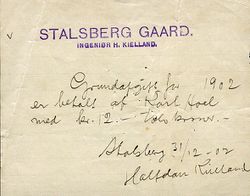 STALSBERG GAARD.
INGENIØR H. KIELLAND.
Grundafgift for 1902
er betalt af Karl Hoel
med kr. 12.— tolv kroner.—
Stalsberg 31/12-02
Halfdan Kielland